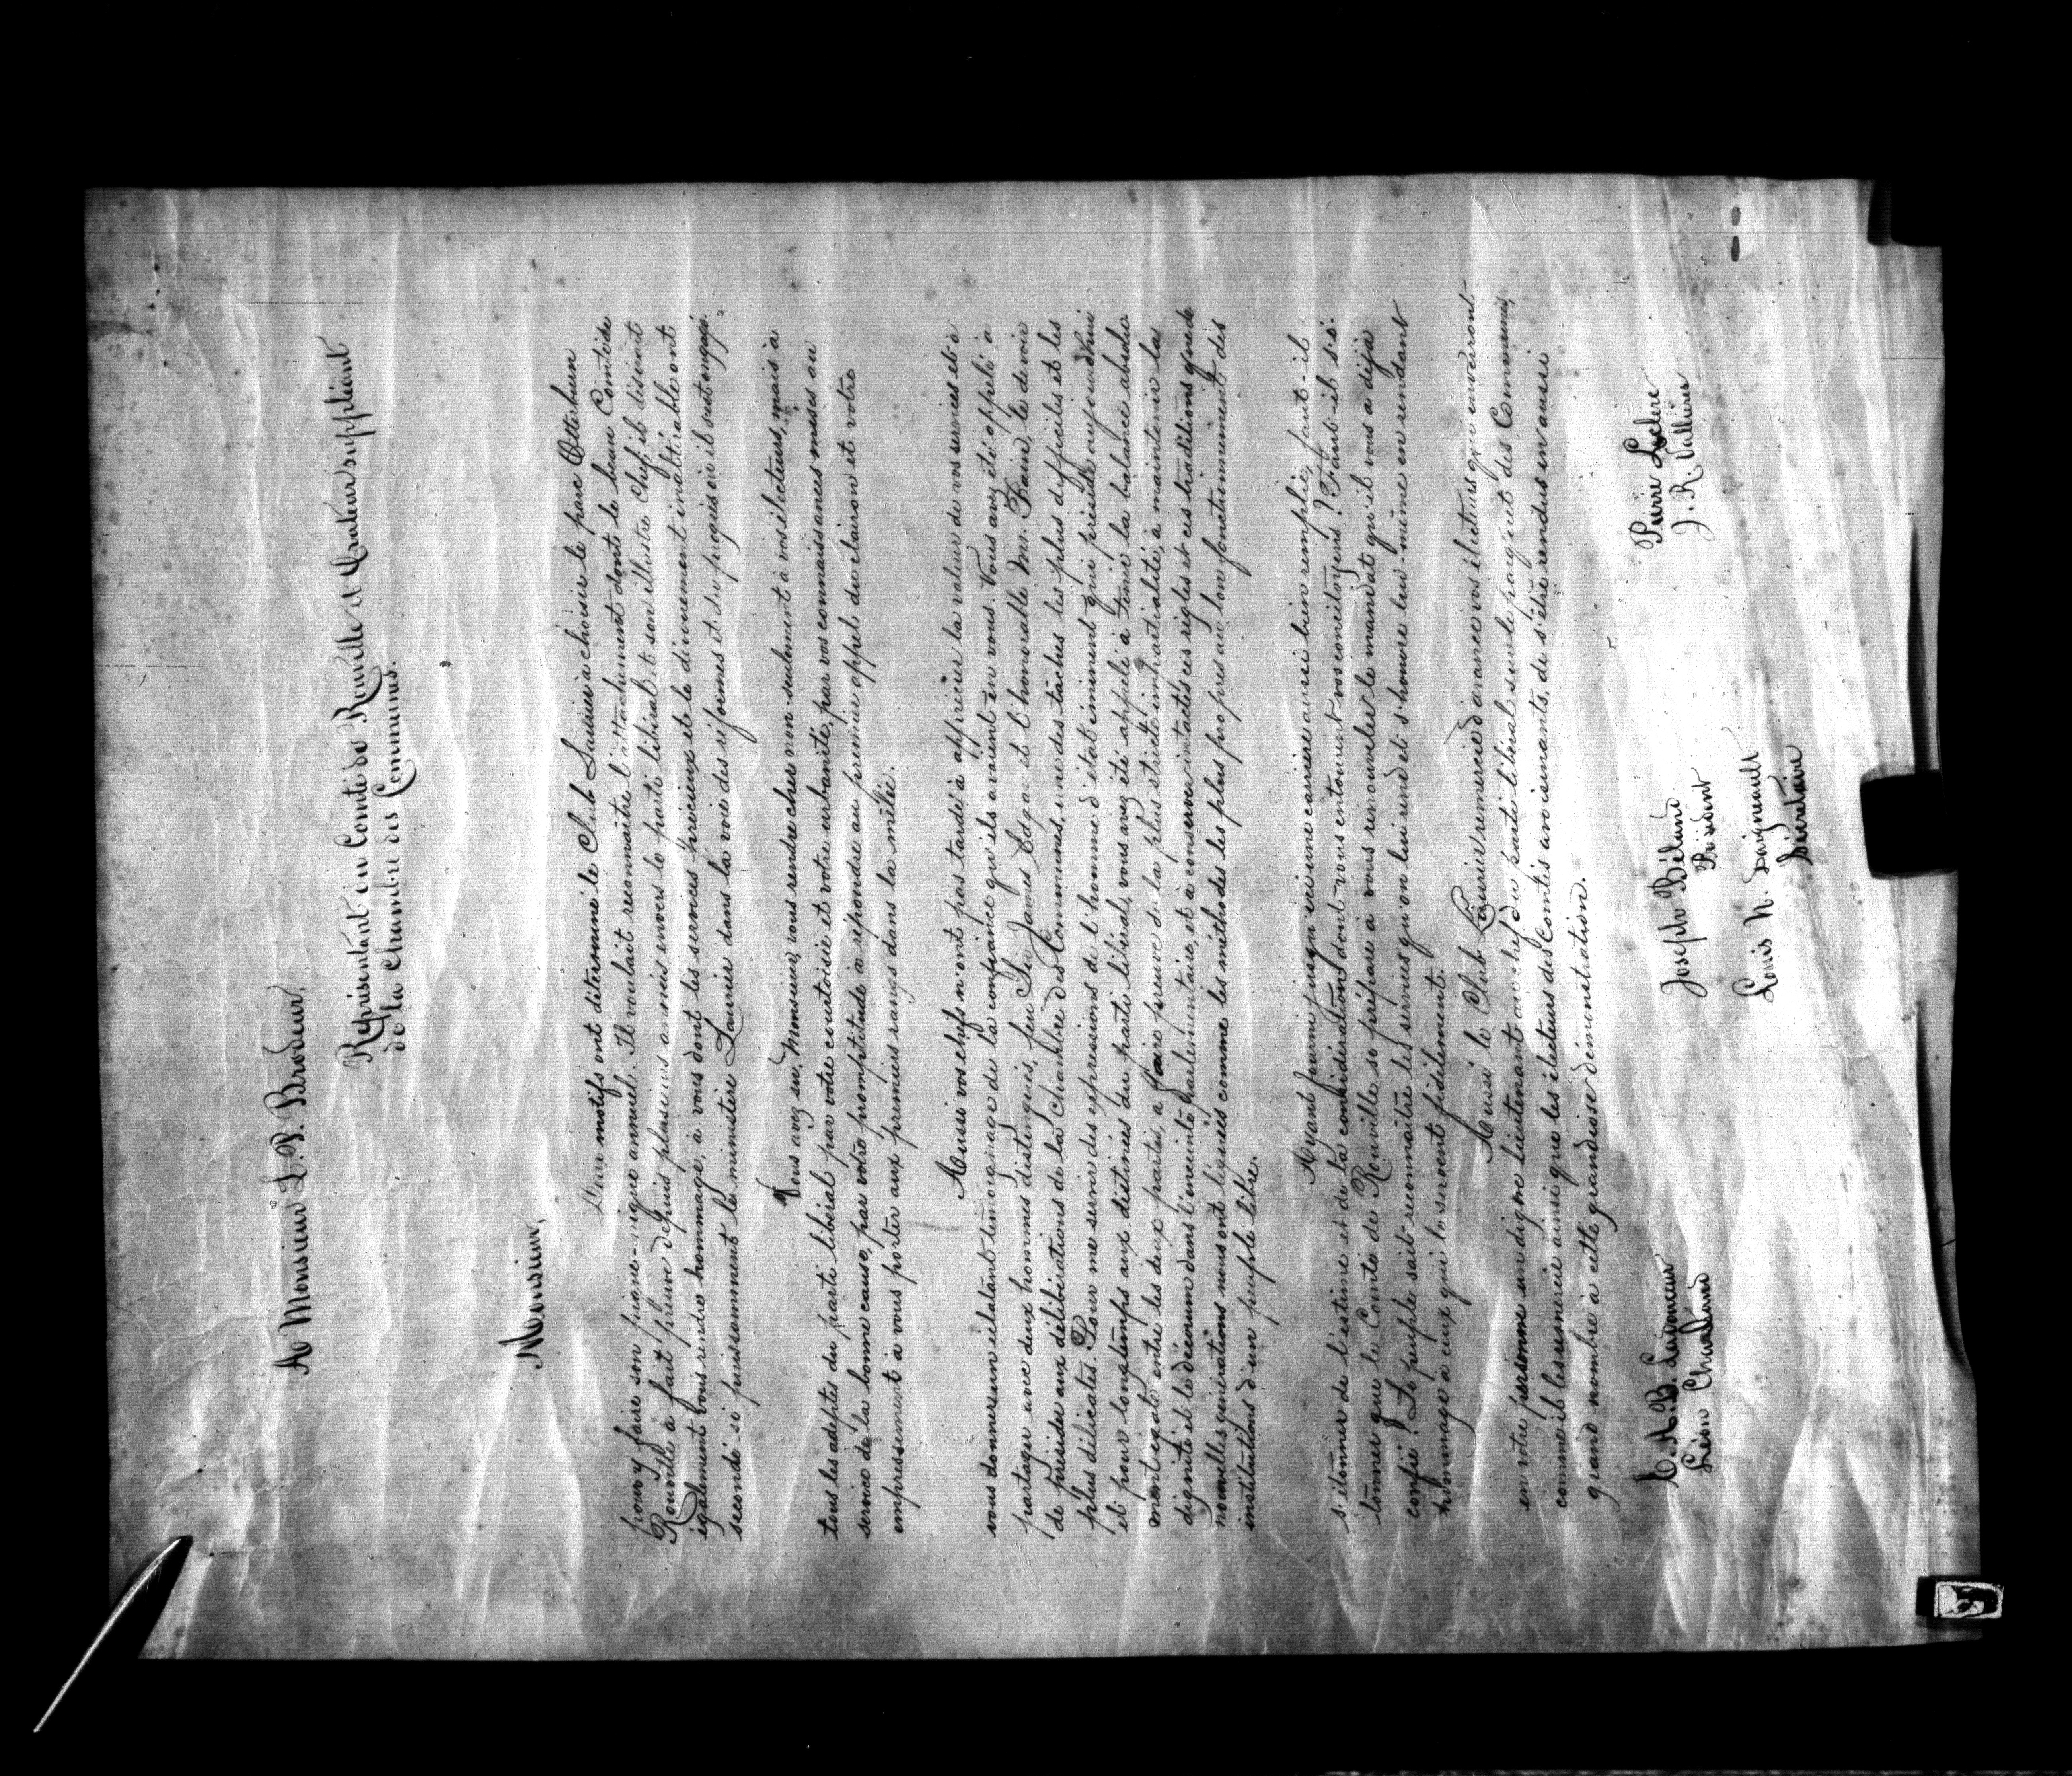 A Monsieur L. P. Brodeur,
Représentant du Comté de Rouville et Orateur suppléant
de la Chambre des Communes.
Monsieur,
Deux motifs ont déterminé le Club Laurier à choisir le parc Otterburn
pour y faire son pique-nique annuel. Il voulait reconnaître l'attachement dont le beau Comté de
Rouville a fait preuve depuis plusieurs années envers le parti libéral et son illustre Chef, il désirait
également vous rendre hommage, à vous dont les services précieux et le dévouement inaltérable ont
secondé si puissamment le ministère Laurier dans la voie des réformes et du progrès où il s'est engagé.
Vous avez su, Monsieur, vous rendre cher non-seulement à vos électeurs, mais à
tous les adeptes du parti libéral par votre courtoisie et votre urbanité, par vos connaissances mises au
service de la bonne cause, par votre promptitude à répondre au premier appel du clairon et votre
empressement à vous porter aux premiers rangs dans la mêlée.
Aussi vos chefs n'ont pas tardé à apprécier la valeur de vos services et à
vous donner un éclatant témoignage de la confiance qu'ils avaient en vous. Vous avez été appelé à
partager avec deux hommes distingués, feu Sir James Edgar et l'honorable M. Bain, le devoir
de présider aux délibérations de la Chambre des Communes, une des tâches les plus difficiles et les
plus délicates. Pour me servir des expressions de l'homme d'état éminent qui préside aujourd'hui
et pour longtemps aux destinées du parti libéral, vous avez été appelé à tenir la balance absolu-
ment égale entre les deux partis, à faire preuve de la plus stricte impartialité, à maintenir la
dignité et le décorum dans l'enceinte parlementaire, et à conserver intactes ces règles et ces traditions que de
nouvelles générations nous ont léguées comme les méthodes les plus propres au bon fonctionnement des
institutions d'un peuple libre.
Ayant fourni jusqu'ici une carrière aussi bien remplie, faut-il
s'étonner de l'estime et de la considération dont vous entourent vos concitoyens? Faut-il s'é-
tonner que le Comté de Rouville se prépare à vous renouveler le mandat qu'il vous a déjà
confié? Le peuple sait reconnaître les services qu'on lui rend et s'honore lui-même en rendant
hommage à ceux qui le servent fidèlement.
Aussi le Club Laurier remercie d'avance vos électeurs qui enverront
en votre personne un digne lieutenant au chef du parti libéral sur le parquet des Communes,
comme il les remercie ainsi que les électeurs des Comtés avoisinants, de s'être rendus en aussi
grand nombre à cette grandiose démonstration.
C. A. B. Ladouceur
Léon Charland
Joseph Béland
Président
Louis N. Daigneault
Secrétaire
Pierre Leclerc
J. R. Vallières